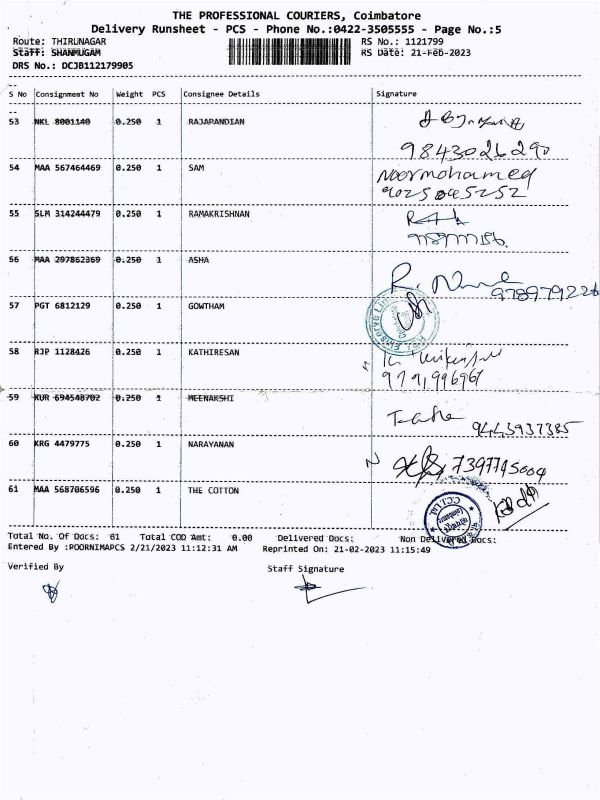 THE PROFESSIONAL COURIERS, Coimbatore
Delivery Runsheet - PCS - Phone No.:0422-3505555 - Page No.:5
Route: THIRUNAGAR RS No.: 1121799
Staff: SHANMUGAM RS Date: 21-Feb-2023
DRS No.: DCJB112179905
S No Consignment No Weight PCS Consignee Details Signature
53 NKL 8001140 0.250 1 RAJAPANDIAN
9843026290
54 MAA 567464469 0.250 1 SAM Noormohamed
9025045252
55 SLM 314244479 0.250 1 RAMAKRISHNAN
56 MAA 297862369 0.250 1 ASHA
9789779226
57 PGT 6812129 0.250 1 GOWTHAM
58 RJP 1128426 0.250 1 KATHIRESAN
59 KUR 694548702 0.250 1 MEENAKSHI
9443937385
60 KRG 4479775 0.250 1 NARAYANAN N
61 MAA 568706596 0.250 1 THE COTTON
Total No. Of Docs: 61 Total COD Amt: 0.00 Delivered Docs: Non Delivered Docs:
Entered By :POORNIMAPCS 2/21/2023 11:12:31 AM Reprinted On: 21-02-2023 11:15:49
Verified By Staff Signature